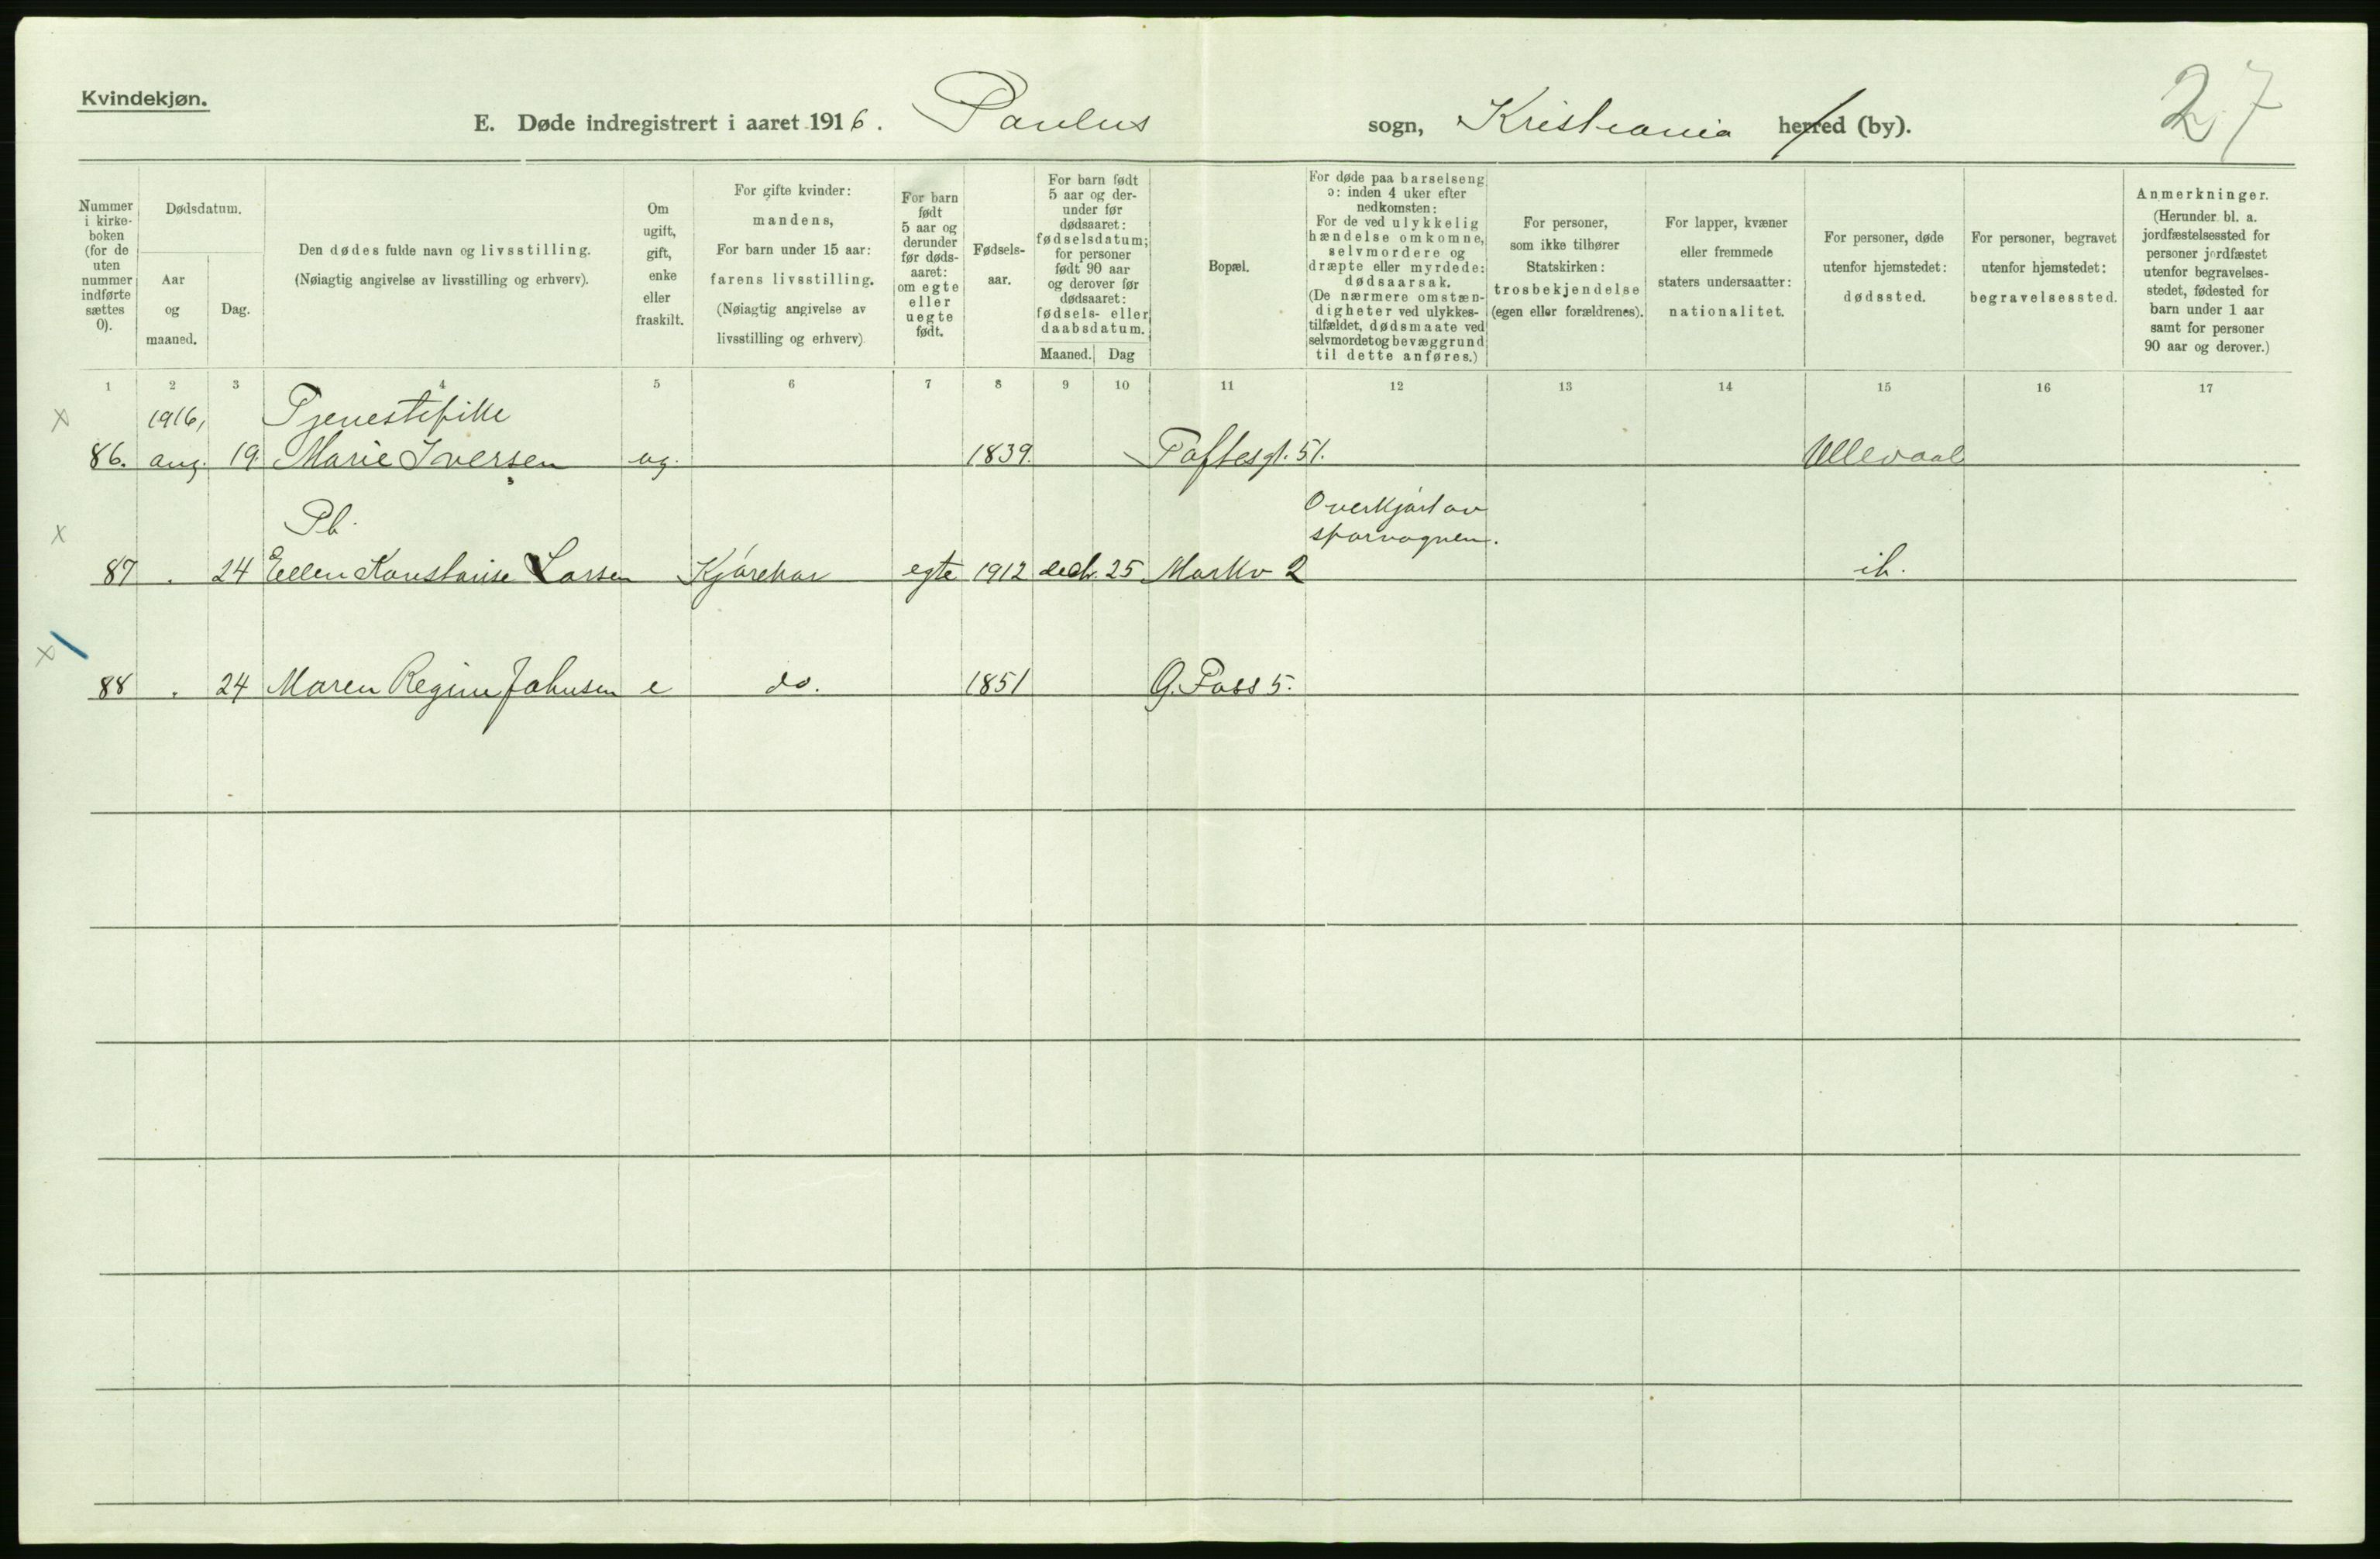 Kvindekjøn.
E. Døde indregistrert i aaret 1916. Paulus sogn, Kristiania herred (by).
27
Nummer i kirke-boken (for de uten nummer indførte sættes 0).
Dødsdatum.
Aar og maaned.
Dag.
Den dødes fulde navn og livsstilling.
(Nøiagtig angivelse av livsstilling og erhverv).
Om ugift, gift, enke eller fraskilt.
For gifte kvinder: mandens,
For barn under 15 aar: farens livsstilling.
(Nøiagtig angivelse av livsstilling og erhverv)
For barn født 5 aar og derunder før døds-aaret: om egte eller uegte født.
Fødsels-aar.
For barn født 5 aar og der-under før dødsaaret: fødselsdatum; for personer født 90 aar og derover før dødsaaret: fødsels- eller daabsdatum.
Maaned. Dag
Bopæl.
For døde paa barselseng ɔ: inden 4 uker efter nedkomsten:
For de ved ulykkelig hændelse omkomne, selvmordere og dræpte eller myrdede: dødsaarsak.
(De nærmere omstæn-digheter ved ulykkes-tilfældet, dødsmaate ved selvmordet og bevæggrund til dette anføres.)
For personer, som ikke tilhører Statskirken: trosbekjendelse (egen eller forældrenes).
For lapper, kvæner eller fremmede staters undersaatter: nationalitet.
For personer, døde utenfor hjemstedet: dødssted.
For personer, begravet utenfor hjemstedet: begravelsessted.
Anmerkninger.
(Herunder bl. a. jordfæstelsessted for personer jordfæstet utenfor begravelses-stedet, fødested for barn under 1 aar samt for personer 90 aar og derover.)
1 2 3 4 5 6 7 8 9 10 11 12 13 14 15 16 17
x 1916, Tjenestepike
86. aug. 19. Marie Iversen ug. 1839. Toftesgt. 51. Ullevaal
x Pb. Overkjørt av
sporvognen.
87 . 24 Ellen Konstanse Larsen Kjørekar egte 1912 decb. 25 Markv 2 ib.
x
88 . 24 Maren Regine Johnsen e do. 1851 G. Pass 5.